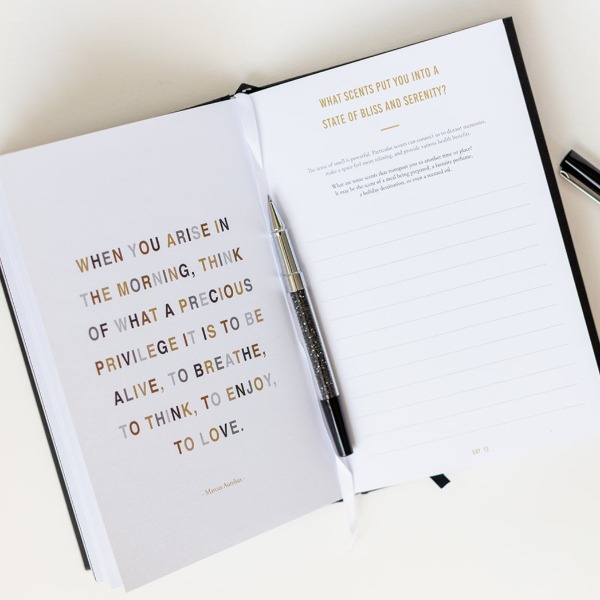 WHEN YOU ARISE IN
THE MORNING, THINK
OF WHAT A PRECIOUS
PRIVILEGE IT IS TO BE
ALIVE, TO BREATHE,
TO THINK, TO ENJOY,
TO LOVE.
- Marcus Aurelius -
WHAT SCENTS PUT YOU INTO A
STATE OF BLISS AND SERENITY?
The sense of smell is powerful. Particular scents can connect us to distant memories,
make a space feel more relaxing, and provide various health benefits.
What are some scents that transport you to another time or place?
It may be the scent of a meal being prepared, a favorite perfume,
a holiday destination, or even a scented oil.